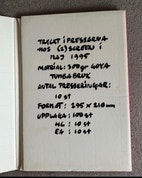 TRYCKT I PRESSARNA
HOS (2) SCREEN I
MAJ 1995
MATRIAL: 300gr GOYA
TUMBA BRUK
ANTAL PRESSNINGAR:
10 st
FORMAT: 295 X 210 mm
UPPLAGA: 100 st
HC: 10 st
EA: 10 st